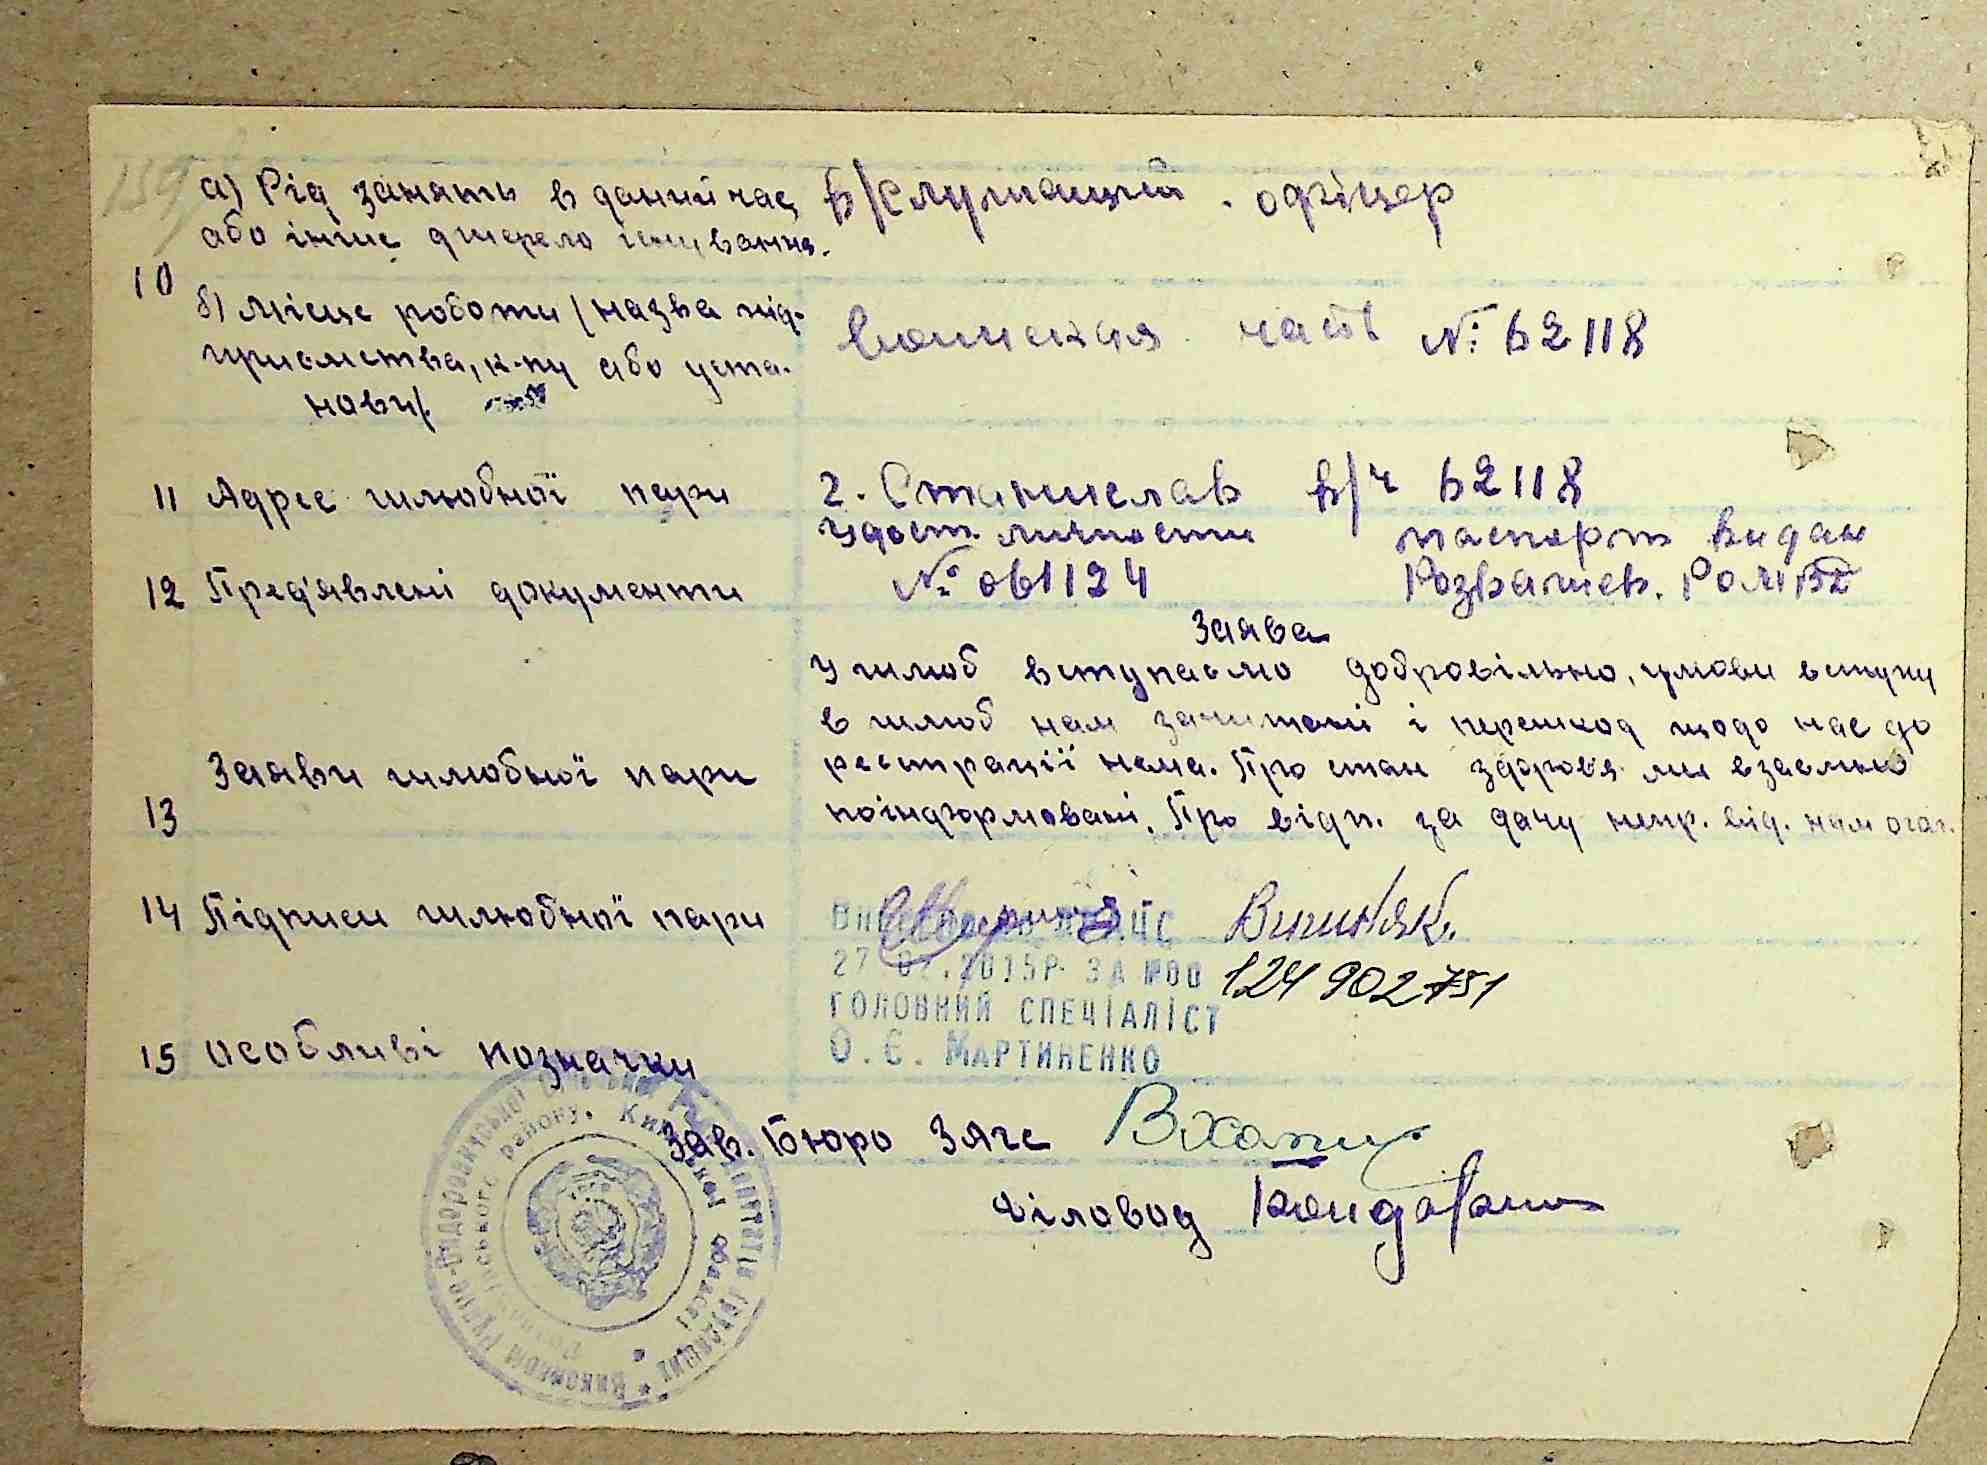 159
а) Рід занять в даний час в/служащий. офіцер
або інше джерело існування.
10
б) Місце роботи /назва під-
приємства, к-пу або уста-
нови/.
воинская часть № 62118
11 Адрес шлюбної пари 2. Станислав в/ч 62118
12 Пред'явлені документи
Удост. личности
№ 061124
паспорт видан
Розважев. РОМВД
Заява
13 Заяви шлюбної пари
У шлюб вступаємо добровільно, умови вступу
в шлюб нам зачитані і перешкод щодо нас до
реєстрації нема. Про стан здоров'я ми взаємно
поінформовані. Про відп. за дачу непр. від. нам огол.
14 Підписи шлюбної пари
ДРАЦС
27.02.2015Р. ЗА №00 124902751
ГОЛОВНИЙ СПЕЦІАЛІСТ
О.Є. МАРТИНЕНКО
15 Особливі позначки
Зав. Бюро Загс
Діловод
Виконком Рудне-Сидоровицької сільської Ради депутатів трудящих
ського району, Київської області